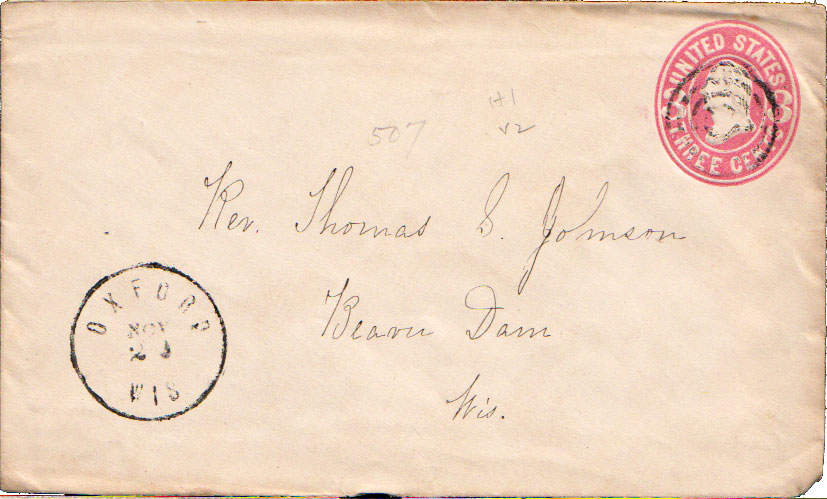 UNITED STATES
THREE CENTS
H1
507 v2
Rev. Thomas S. Johnson
Beaver Dam
Wis.
OXFORD
NOV
WIS